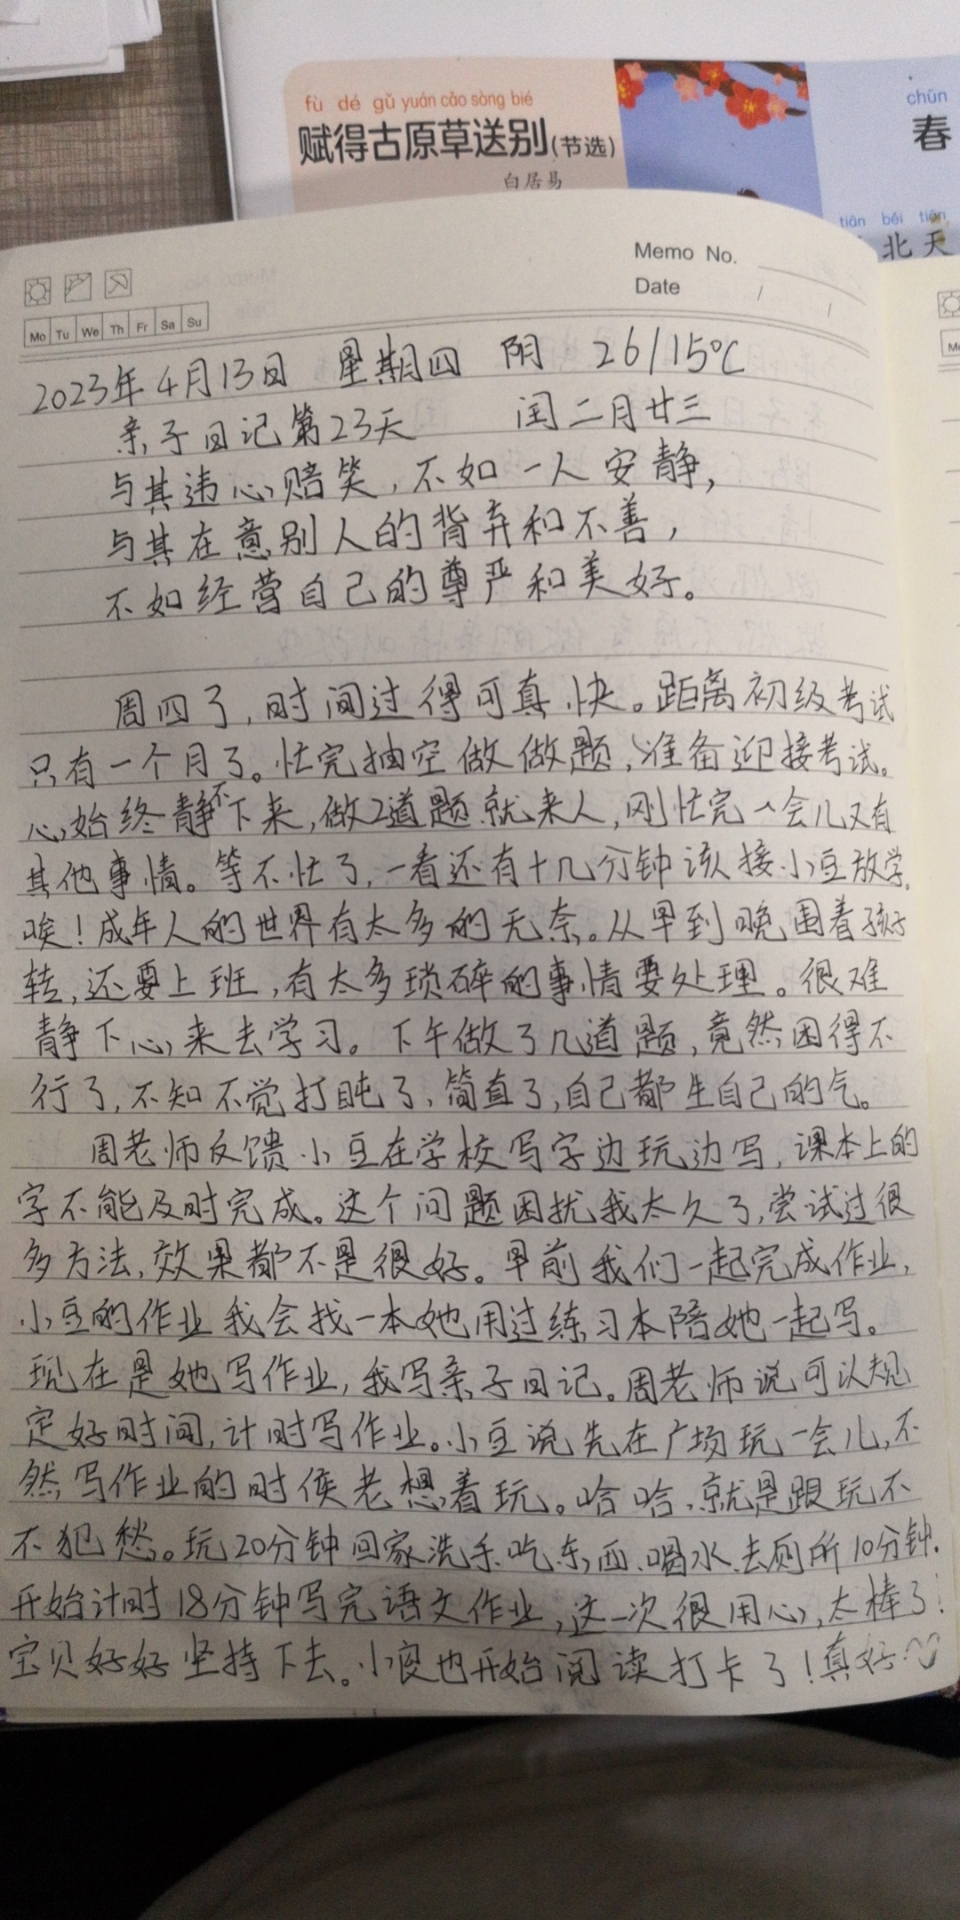 fù dé gǔ yuán cǎo sòng bié
赋得古原草送别(节选)
白居易
chūn
春
tiān běi tiān
北天
Memo No.
Date / /
Mo Tu We Th Fr Sa Su
2023年4月13日 星期四 阴 26/15℃
亲子日记第23天 闰二月廿三
与其违心赔笑,不如一人安静,
与其在意别人的背弃和不善,
不如经营自己的尊严和美好。
周四了,时间过得可真快。距离初级考试
只有一个月了。忙完抽空做做题,准备迎接考试。
心始终静不下来,做2道题就来人,刚忙完一会儿又有
其他事情。等不忙了,一看还有十几分钟该接小豆放学。
唉!成年人的世界有太多的无奈。从早到晚围着孩子
转,还要上班,有太多琐碎的事情要处理。很难
静下心来去学习。下午做了几道题,竟然困得不
行了,不知不觉打盹了,简直了,自己都生自己的气。
周老师反馈小豆在学校写字边玩边写,课本上的
字不能及时完成。这个问题困扰我太久了,尝试过很
多方法,效果都不是很好。早前我们一起完成作业,
小豆的作业我会找一本她用过练习本陪她一起写。
现在是她写作业,我写亲子日记。周老师说可以规
定好时间,计时写作业。小豆说先在广场玩一会儿,不
然写作业的时侯老想着玩。哈哈,就是跟玩不
不犯愁。玩20分钟回家洗手吃东西、喝水、去厕所10分钟.
开始计时18分钟写完语文作业,这一次很用心,太棒了!
宝贝好好坚持下去。小度也开始阅读打卡了!真好~♡